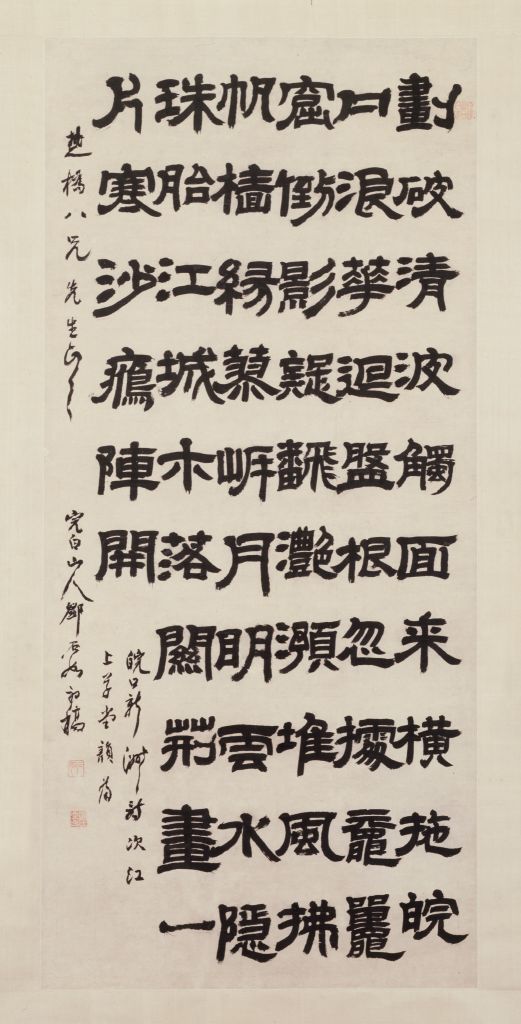 劃破清波觸面来橫拖皖
口浪華迴盤根忽據黿鼉
窟倒影疑飜灧澦堆風拂
帆檣緣岸月明雲水隱
珠胎江城木落關荊畫一
片寒沙鴈陣開
皖口新洲詩次江
上草堂韻為
楚橋八兄先生正之 完白山人鄧石如初稿